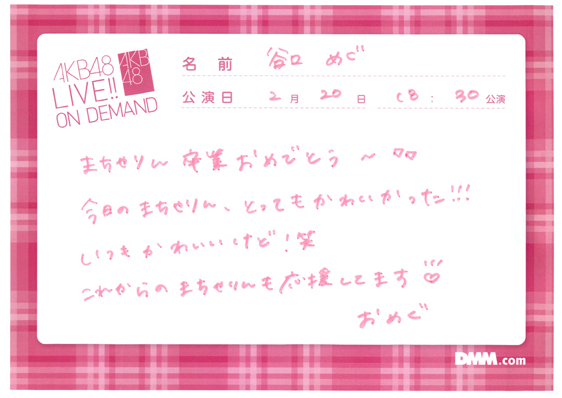 AKB48
LIVE!!
ON DEMAND
AKB
48
名前 谷口 めぐ
公演日 2月 20日 18:30公演
まちゃりん 卒業おめでとう～
今日のまちゃりん、とってもかわいかった!!!
いつもかわいいけど!笑
これからのまちゃりんも応援してます♡
おめぐ
DMM.com